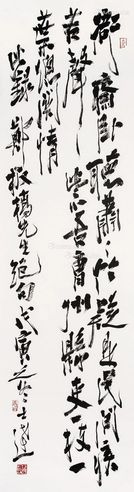 衙齋卧聽蕭蕭竹疑是民間疾
苦聲些小吾曹州縣吏一枝一
葉總關情
此錄鄭板橋先生絕句戊寅之冬